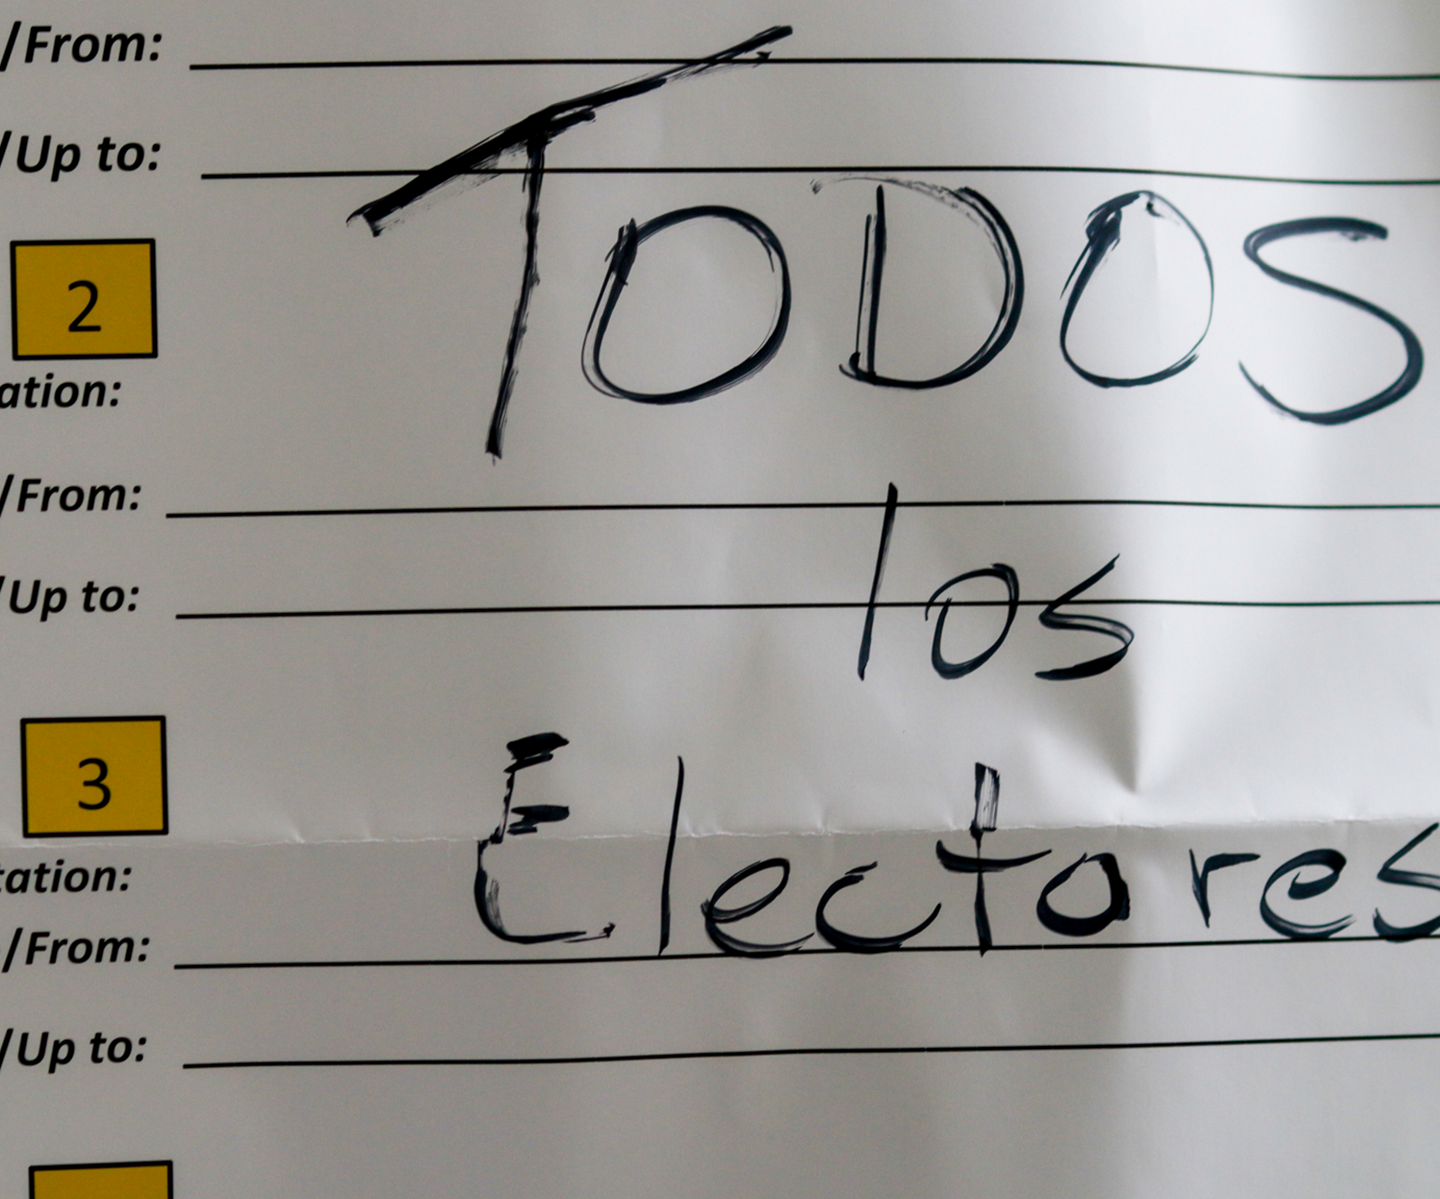 /From:
/Up to:
TODOS
2
ation:
/From:
los
/Up to:
3
Electores
tation:
/From:
/Up to: